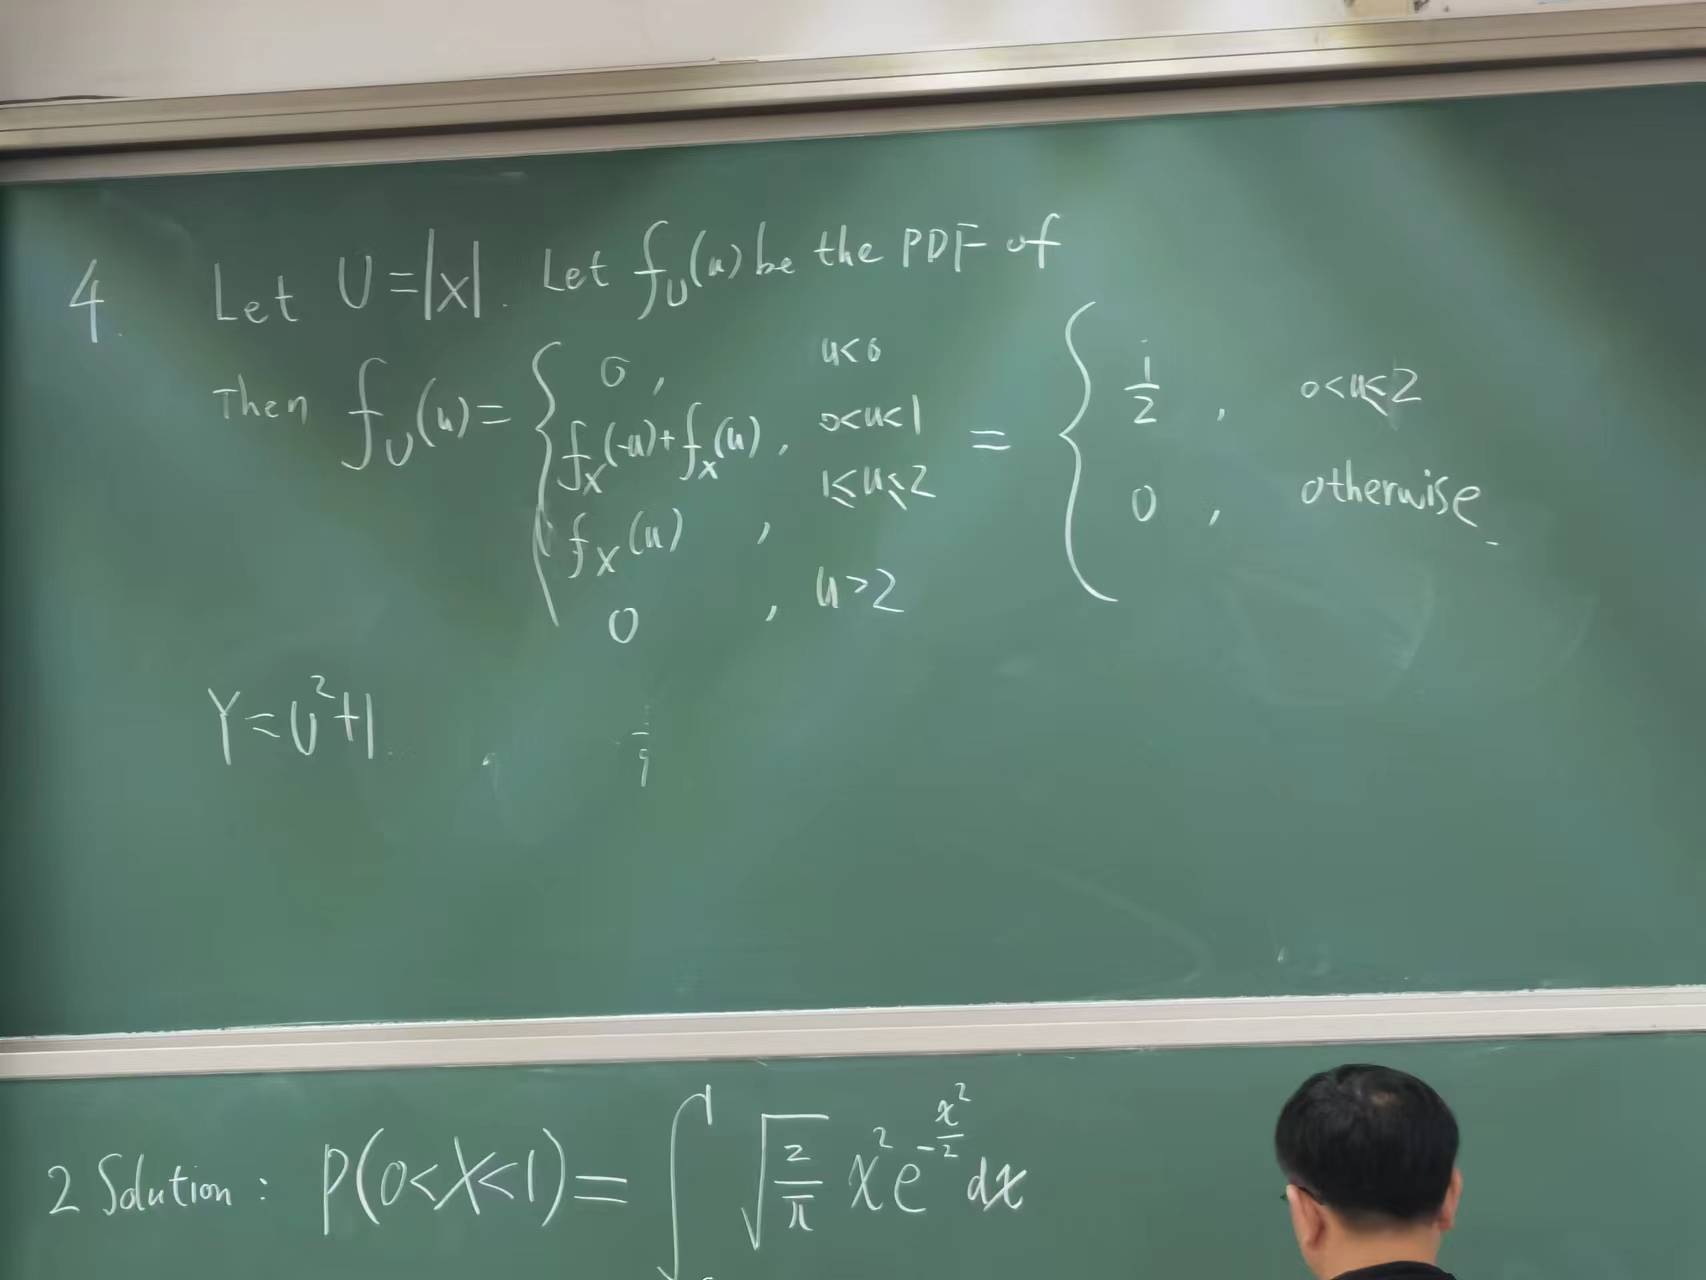 4. Let U=|X|. Let f_U(u) be the PDF of
Then f_U(u) = { 0, u<0
f_X(-u)+f_X(u), 0<u<1
f_X(u), 1≤u≤2
0, u>2
= { 1/2, 0<u≤2
0, otherwise.
Y=U²+1
2 Solution: P(0<X<1)=∫ √(2/π) x² e^(-x²/2) dx